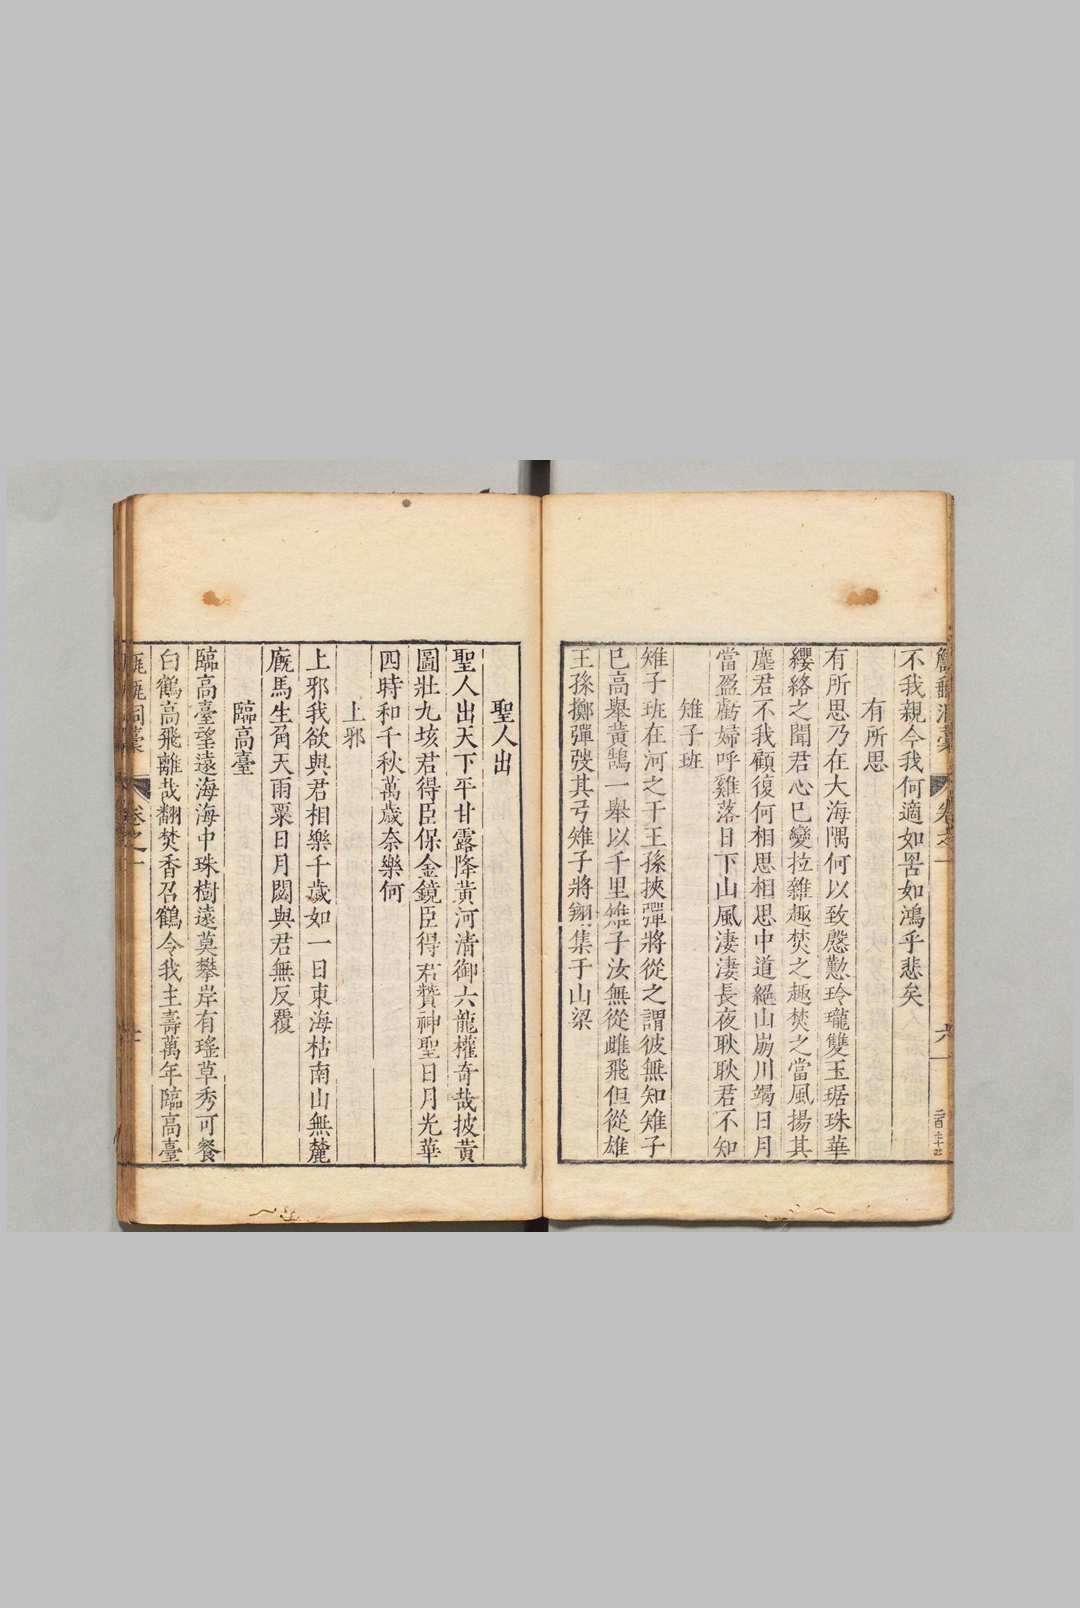 不我親今我何適如罟如鴻乎悲矣
有所思
有所思乃在大海隅何以致慇懃玲瓏雙玉琚珠華
纓絡之聞君心已變拉雜趣焚之趣焚之當風揚其
塵君不我顧復何相思相思中道絕山崩川竭日月
當盈虧婦呼雞落日下山風淒淒長夜耿耿君不知
雉子班
雉子班在河之干王孫挾彈將從之謂彼無知雉子
已高舉黃鵠一舉以千里雉子汝無從雌飛但從雄
王孫擲彈弢其弓雉子將翔集于山梁
聖人出
聖人出天下平甘露降黃河清御六龍權奇哉披黃
圖壯九垓君得臣保金鏡臣得君贊神聖日月光華
四時和千秋萬歲奈樂何
上邪
上邪我欲與君相樂千歲如一日東海枯南山無麓
廐馬生角天雨粟日月闕與君無反覆
臨高臺
臨高臺望遠海海中珠樹遠莫攀岸有瑤草秀可餐
白鶴高飛離哉翻焚香召鶴令我主壽萬年臨高臺
卷之一